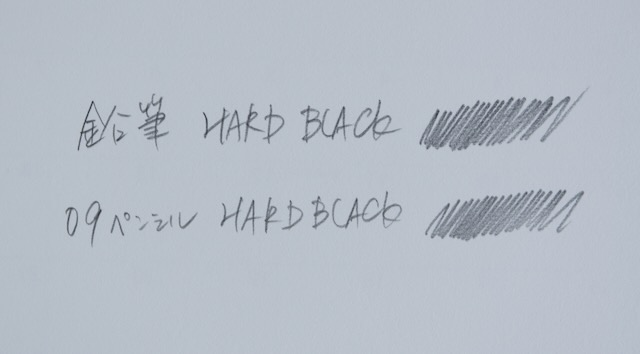 鉛筆 HARD BLACK
09ペンシル HARD BLACK